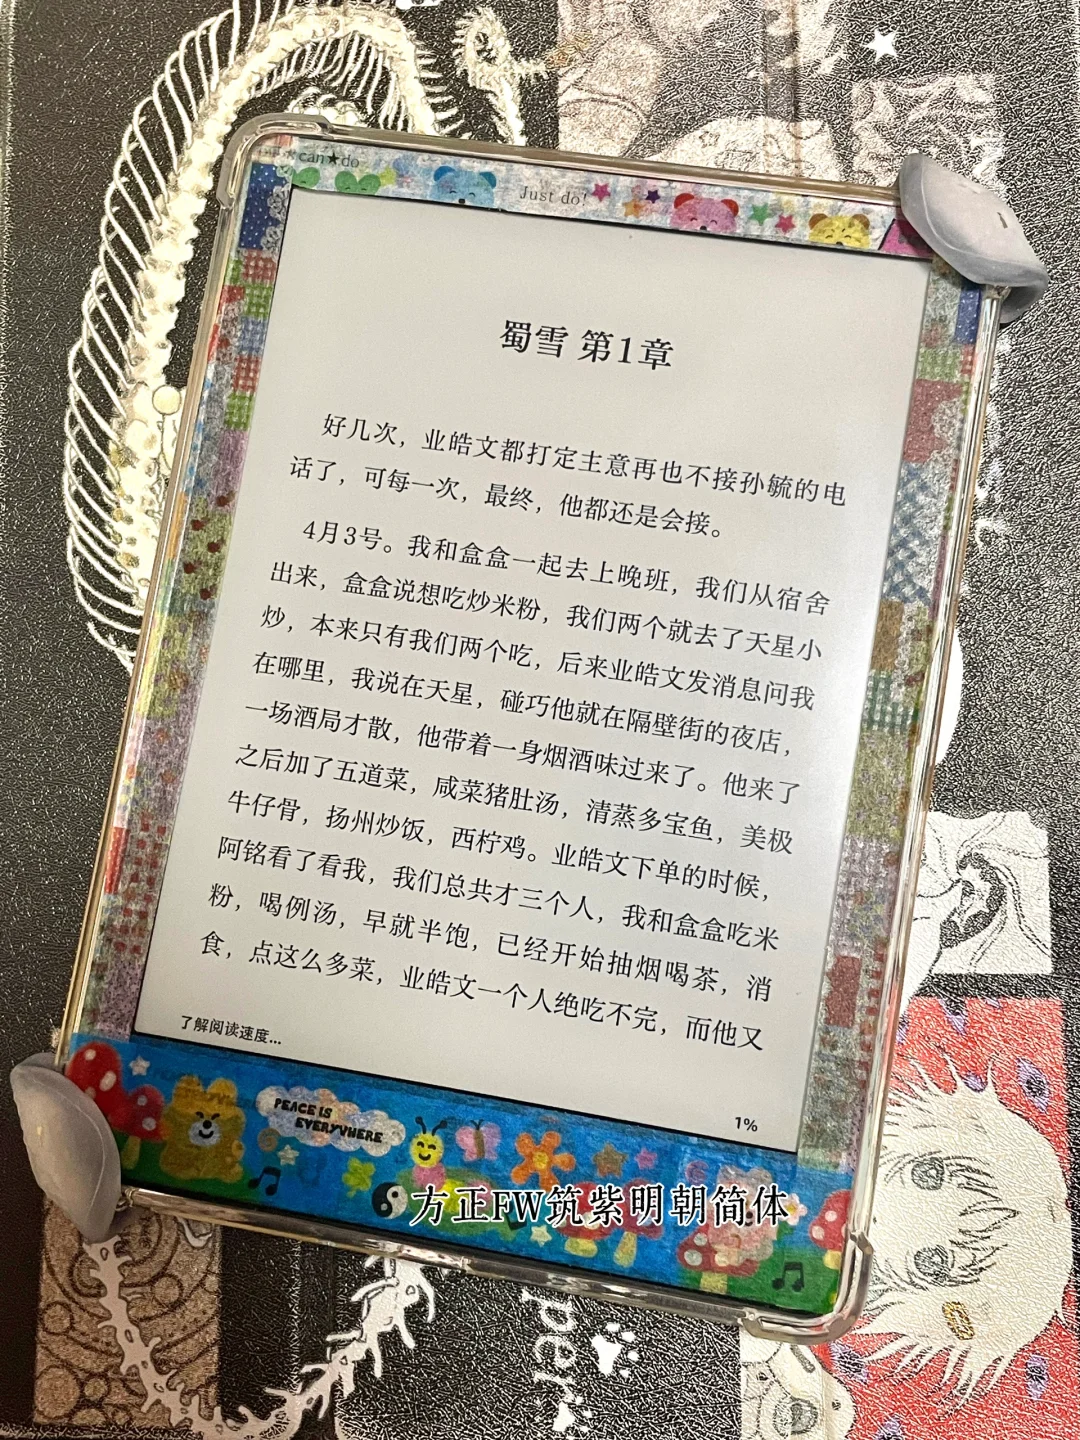 can★do
Just do!
蜀雪 第1章
好几次，业皓文都打定主意再也不接孙毓的电
话了，可每一次，最终，他都还是会接。
4月3号。我和盒盒一起去上晚班，我们从宿舍
出来，盒盒说想吃炒米粉，我们两个就去了天星小
炒，本来只有我们两个吃，后来业皓文发消息问我
在哪里，我说在天星，碰巧他就在隔壁街的夜店，
一场酒局才散，他带着一身烟酒味过来了。他来了
之后加了五道菜，咸菜猪肚汤，清蒸多宝鱼，美极
牛仔骨，扬州炒饭，西柠鸡。业皓文下单的时候，
阿铭看了看我，我们总共才三个人，我和盒盒吃米
粉，喝例汤，早就半饱，已经开始抽烟喝茶，消
食，点这么多菜，业皓文一个人绝吃不完，而他又
了解阅读速度...
1%
PEACE IS
EVERYWHERE
方正FW筑紫明朝简体
per